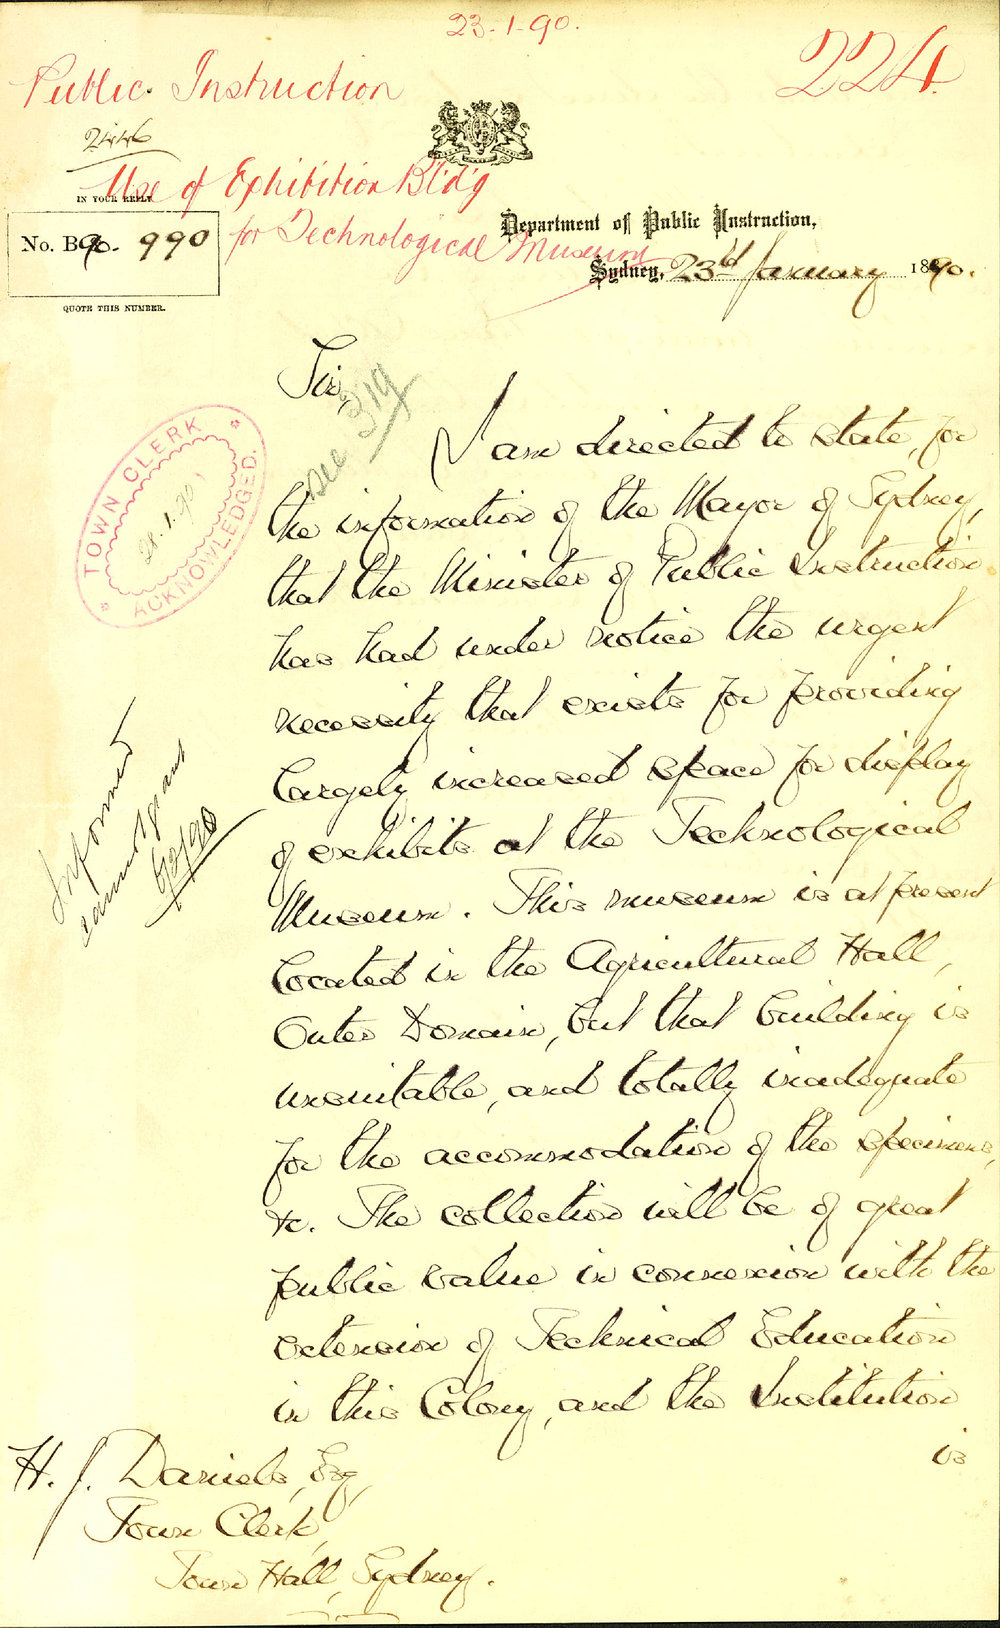 23-1-90.
224
Public Instruction
2446
Use of Exhibition Bld'g
for Technological Museum
IN YOUR REPLY
No. B90. 990
QUOTE THIS NUMBER.
Department of Public Instruction,
Sydney, 23rd January 1890.
Sir,
see 319
I am directed to state, for
the information of the Mayor of Sydney,
that the Minister of Public Instruction
has had under notice the urgent
necessity that exists for providing
largely increased space for display
of exhibits at the Technological
Museum. This museum is at present
located in the Agricultural Hall,
Outer Domain, but that building is
unsuitable, and totally inadequate
for the accommodation of the specimens,
&c. The collection will be of great
public value in connexion with the
extension of Technical Education
in this Colony, and the Institution
is
TOWN CLERK
ACKNOWLEDGED.
Informed
cannot grant
H. J. Daniels, Esq,
Town Clerk,
Town Hall, Sydney.